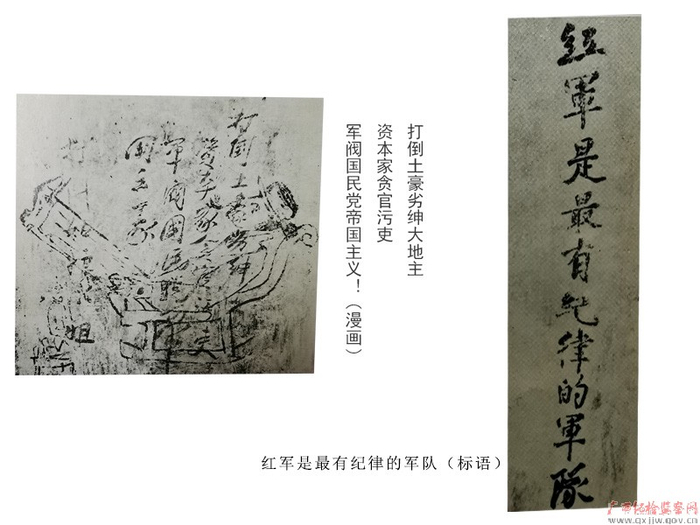 打倒土豪劣绅大地主
资本家贪官污吏
军阀国民党帝国主义！（漫画）
打倒土豪劣绅
军阀国民党
红军是最有纪律的軍隊
红军是最有纪律的军队（标语）
广西纪检监察网
www.gxjjw.gov.cn